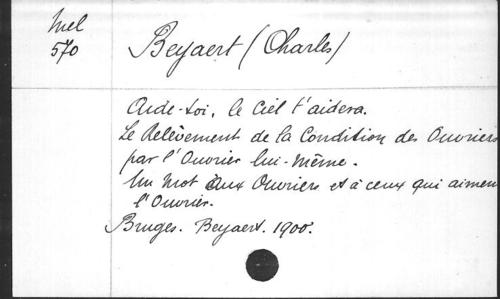 Mel
570
Beyaert (Charles)
Aide-toi, le Ciel t'aidera.
Le Relèvement de la Condition des Ouvriers
par l'Ouvrier lui-même.
Un mot aux Ouvriers et à ceux qui aiment
l'Ouvrier.
Bruges. Beyaert. 1900.